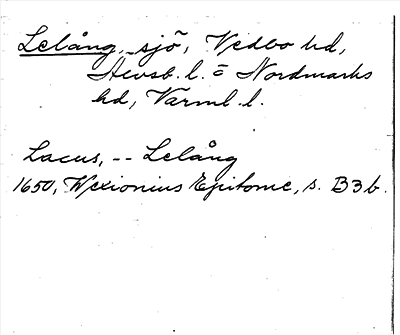 Lelång, sjö, Vedbo hd,
Älvsb. l. o Nordmarks
hd, Värml. l.
Lacus, -- Lelång
1650, Wexionius Epitome, s. B3b.